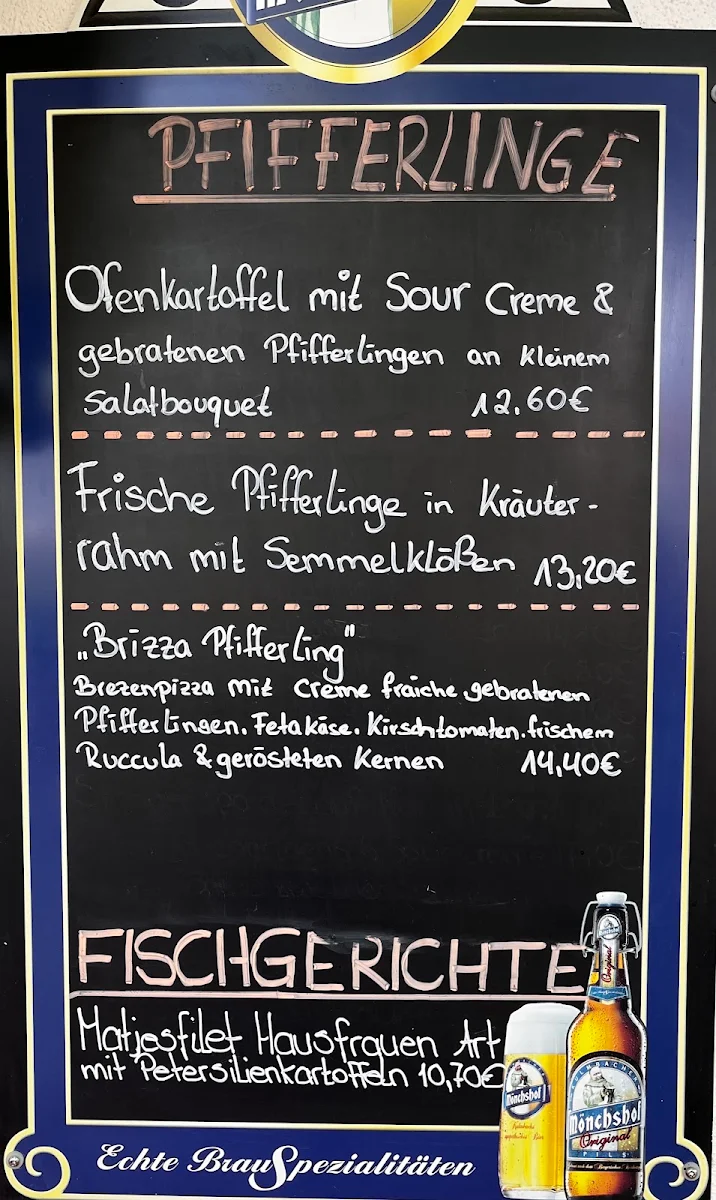 PFIFFERLINGE
Ofenkartoffel mit Sour Creme &
gebratenen Pfifferlingen an kleinem
Salatbouquet 12.60€
Frische Pfifferlinge in Kräuter-
rahm mit Semmelklößen 13,20€
„Brizza Pfifferling"
Brezenpizza mit Creme fraiche gebratenen
Pfifferlingen. Fetakäse. Kirschtomaten. frischem
Ruccula & gerösteten Kernen 14,40€
FISCHGERICHTE
Matjesfilet Hausfrauen Art
mit Petersilienkartoffeln 10,70€
Original
Mönchshof
KULMBACHER
Mönchshof
Original
PILS
Echte BrauSpezialitäten